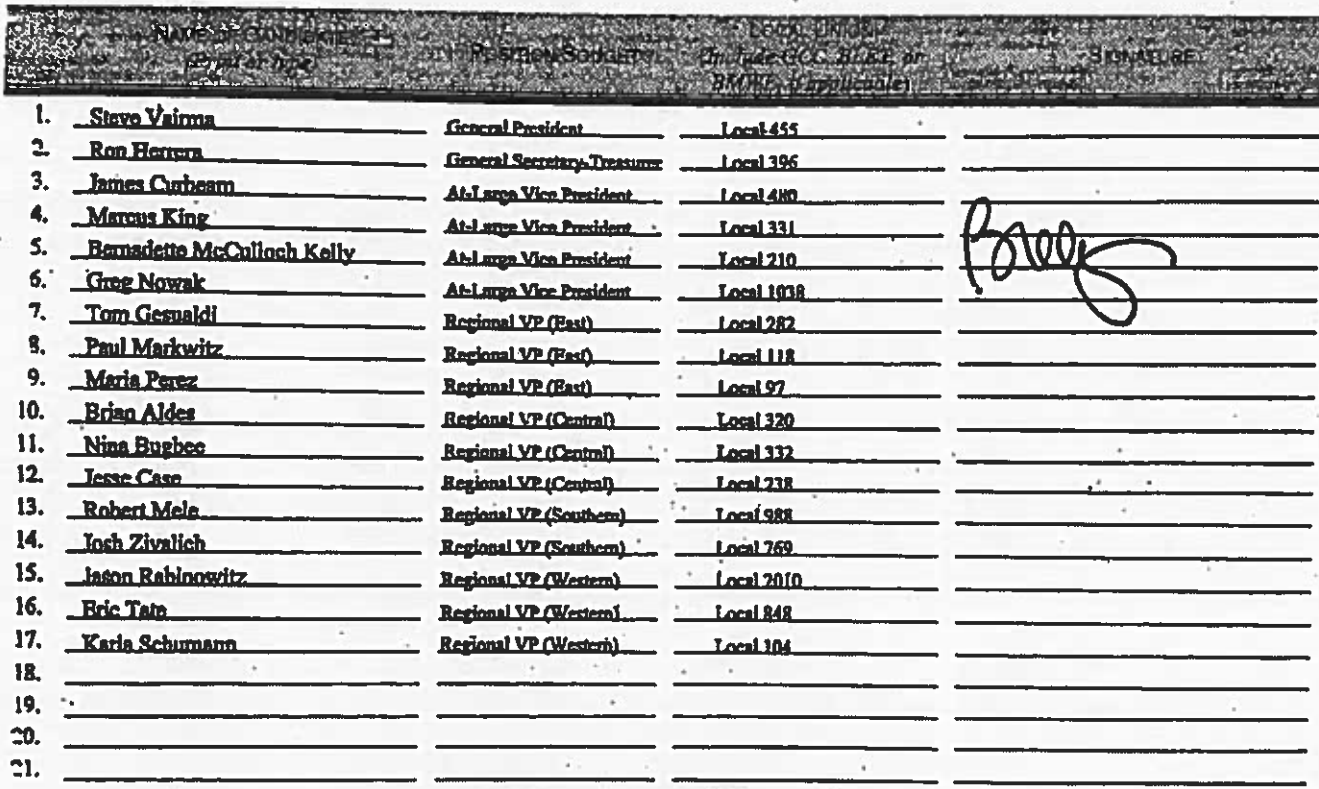 NAME OF CANDIDATE POSITION SOUGHT LOCAL UNION # SIGNATURE
(Print or type) (Include GCC, BLET, or
BMWE, if applicable)
1. Steve Vairma General President Local 455
2. Ron Herrera General Secretary-Treasurer Local 396
3. James Curbeam At-Large Vice President Local 480
4. Marcus King At-Large Vice President Local 331
5. Bernadette McCulloch Kelly At-Large Vice President Local 210
6. Greg Nowak At-Large Vice President Local 1038
7. Tom Gesualdi Regional VP (East) Local 282
8. Paul Markwitz Regional VP (East) Local 118
9. Maria Perez Regional VP (East) Local 97
10. Brian Aldes Regional VP (Central) Local 320
11. Nina Bugbee Regional VP (Central) Local 332
12. Jesse Case Regional VP (Central) Local 238
13. Robert Mele Regional VP (Southern) Local 988
14. Josh Zivalich Regional VP (Southern) Local 769
15. Jason Rabinowitz Regional VP (Western) Local 2010
16. Eric Tate Regional VP (Western) Local 848
17. Karla Schumann Regional VP (Western) Local 104
18.
19.
20.
21.